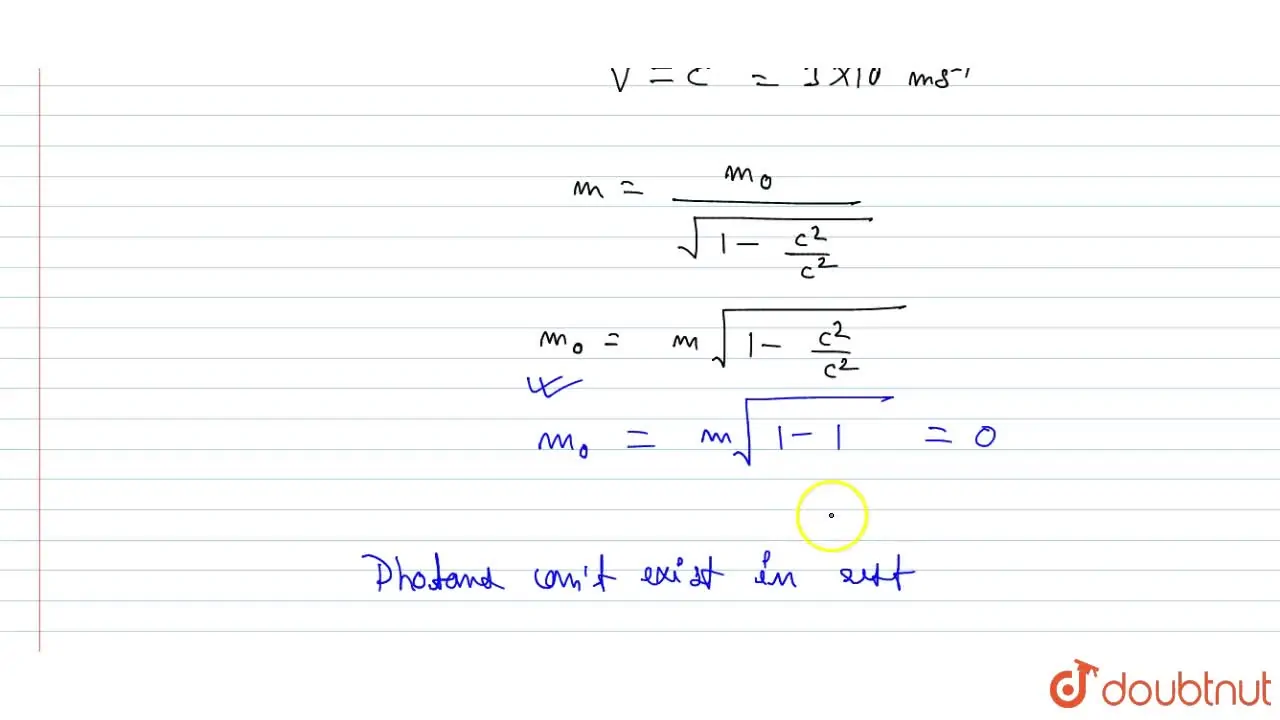 V = C = 3 X 10 ms⁻¹
m = m₀ / √(1 - c²/c²)
m₀ = m √(1 - c²/c²)
m₀ = m √(1 - 1) = 0
Photons can't exist in rest
doubtnut